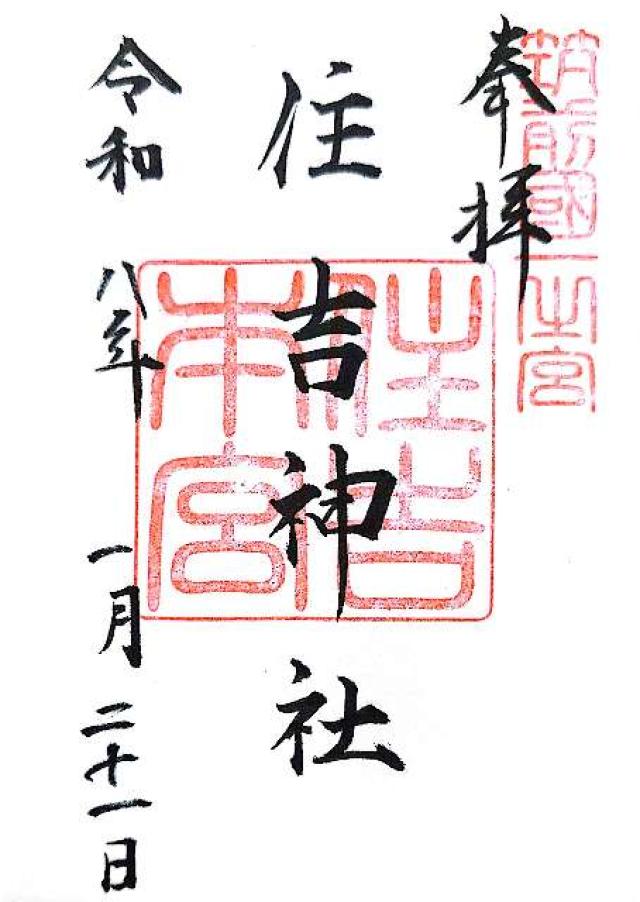 筑前國一之宮
奉拝
住吉神社
住吉
本宮
令和八年一月二十一日